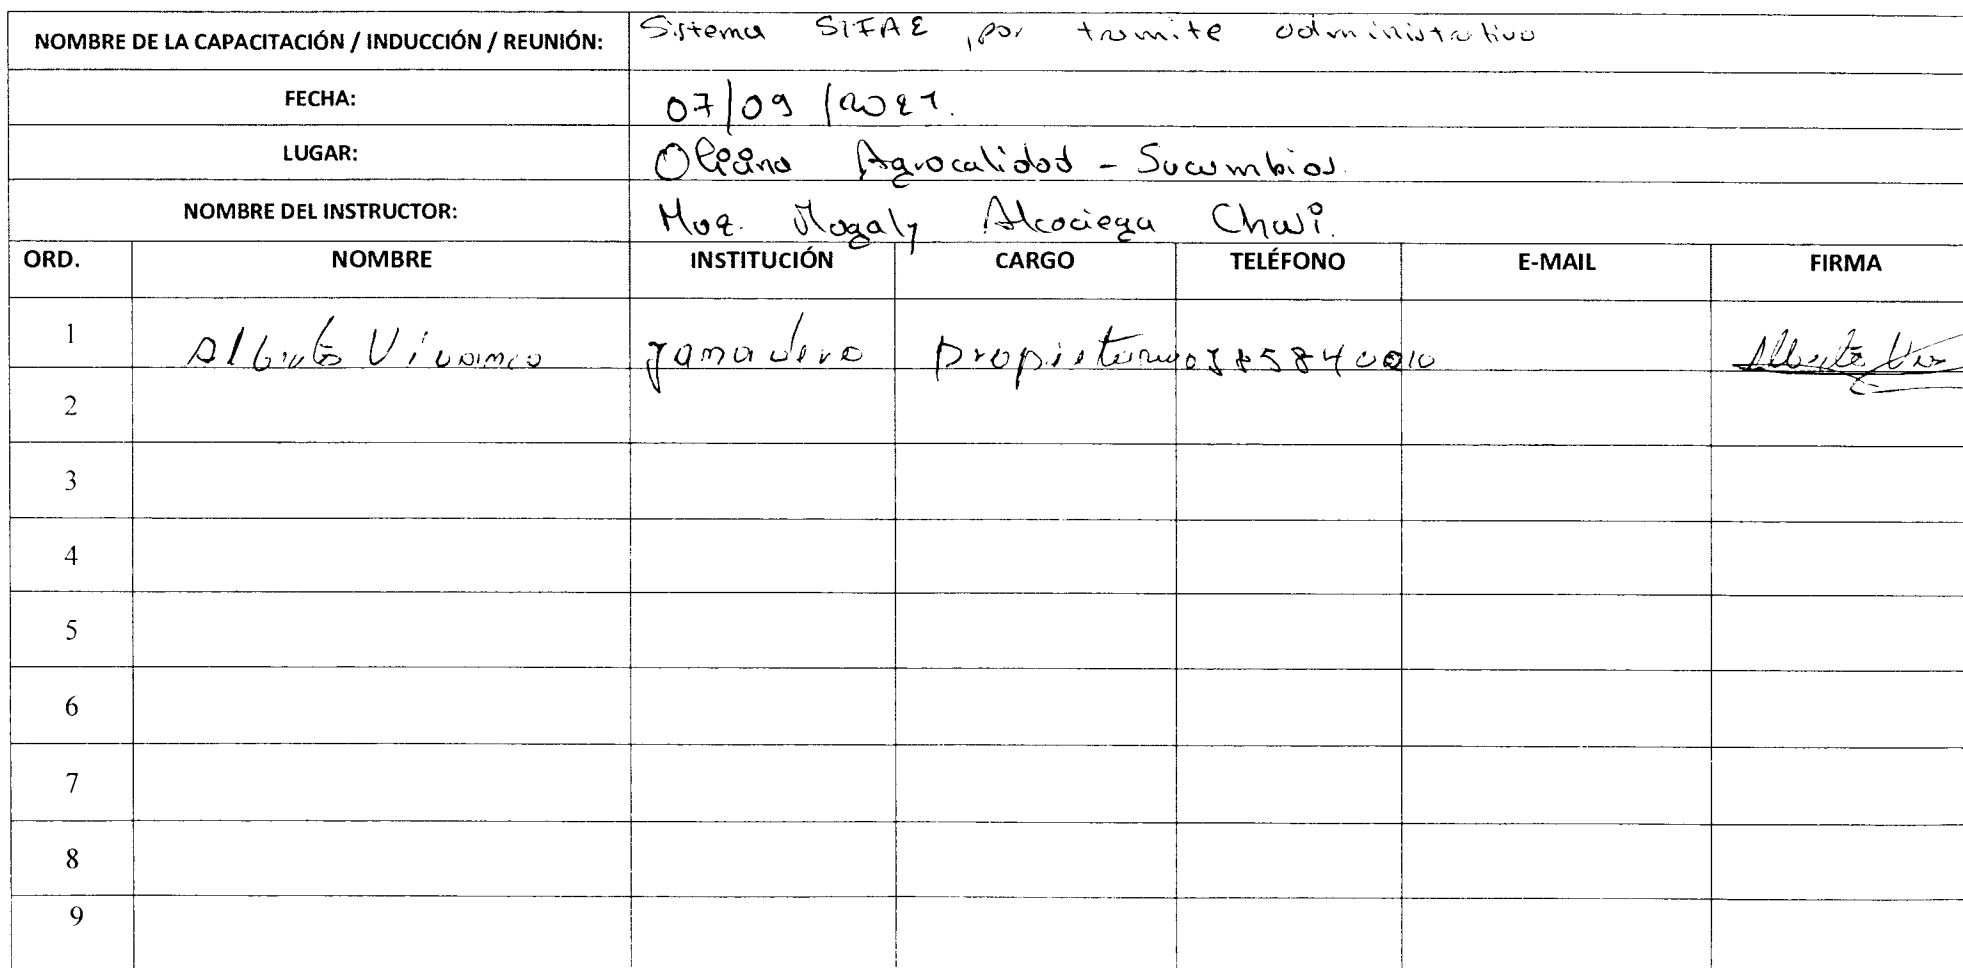 NOMBRE DE LA CAPACITACIÓN / INDUCCIÓN / REUNIÓN: Sistema SIFAE, por tramite administrativo
FECHA: 07/09/2021.
LUGAR: Oficina Agrocalidad - Sucumbios.
NOMBRE DEL INSTRUCTOR: Mvz. Magaly Alcociega
ORD. NOMBRE INSTITUCIÓN CARGO TELÉFONO E-MAIL FIRMA
1 Alberto Vivanco ganadero propietario
2
3
4
5
6
7
8
9